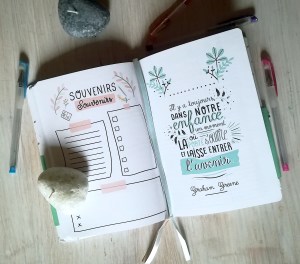 SOUVENIRS
Souvenirs
Il y a toujours,
DANS NOTRE
enfance,
un moment
LA OÙ
PORTE S'OUVRE
ET LAISSE ENTRER
l'avenir
Graham Greene